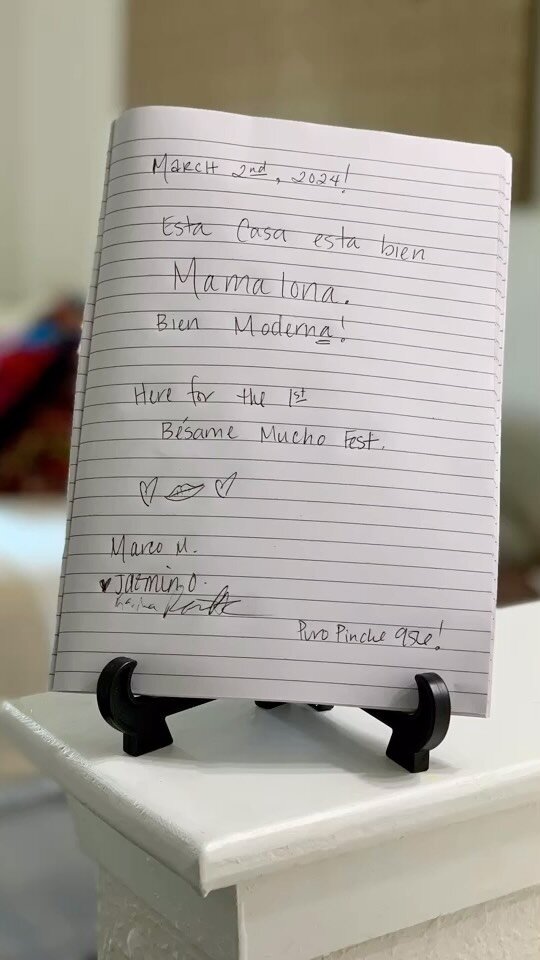 March 2nd, 2024!
Esta Casa esta bien
Mamalona.
Bien Moderna!
Here for the 1st
Bésame Mucho Fest.
Marco M.
Jazmin O.
Puro Pinche 956!